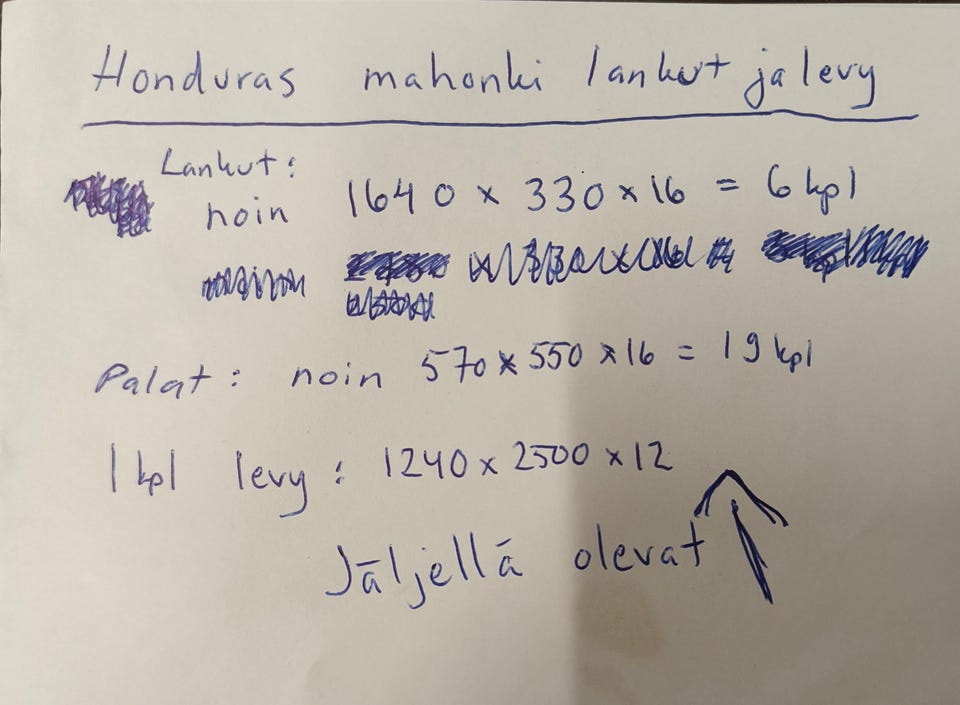 Honduras mahonki lankut ja levy
Lankut:
noin 1640 x 330 x 16 = 6 kpl
Palat: noin 570 x 550 x 16 = 19 kpl
1 kpl levy: 1240 x 2500 x 12
Jäljellä olevat